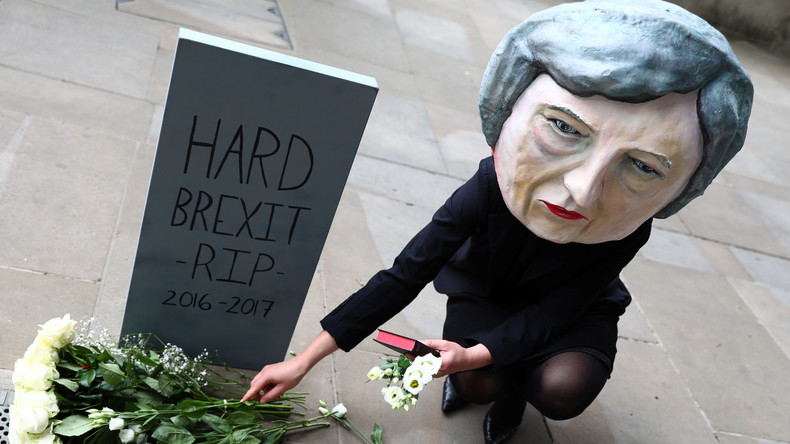 HARD
BREXIT
-RIP-
2016-2017